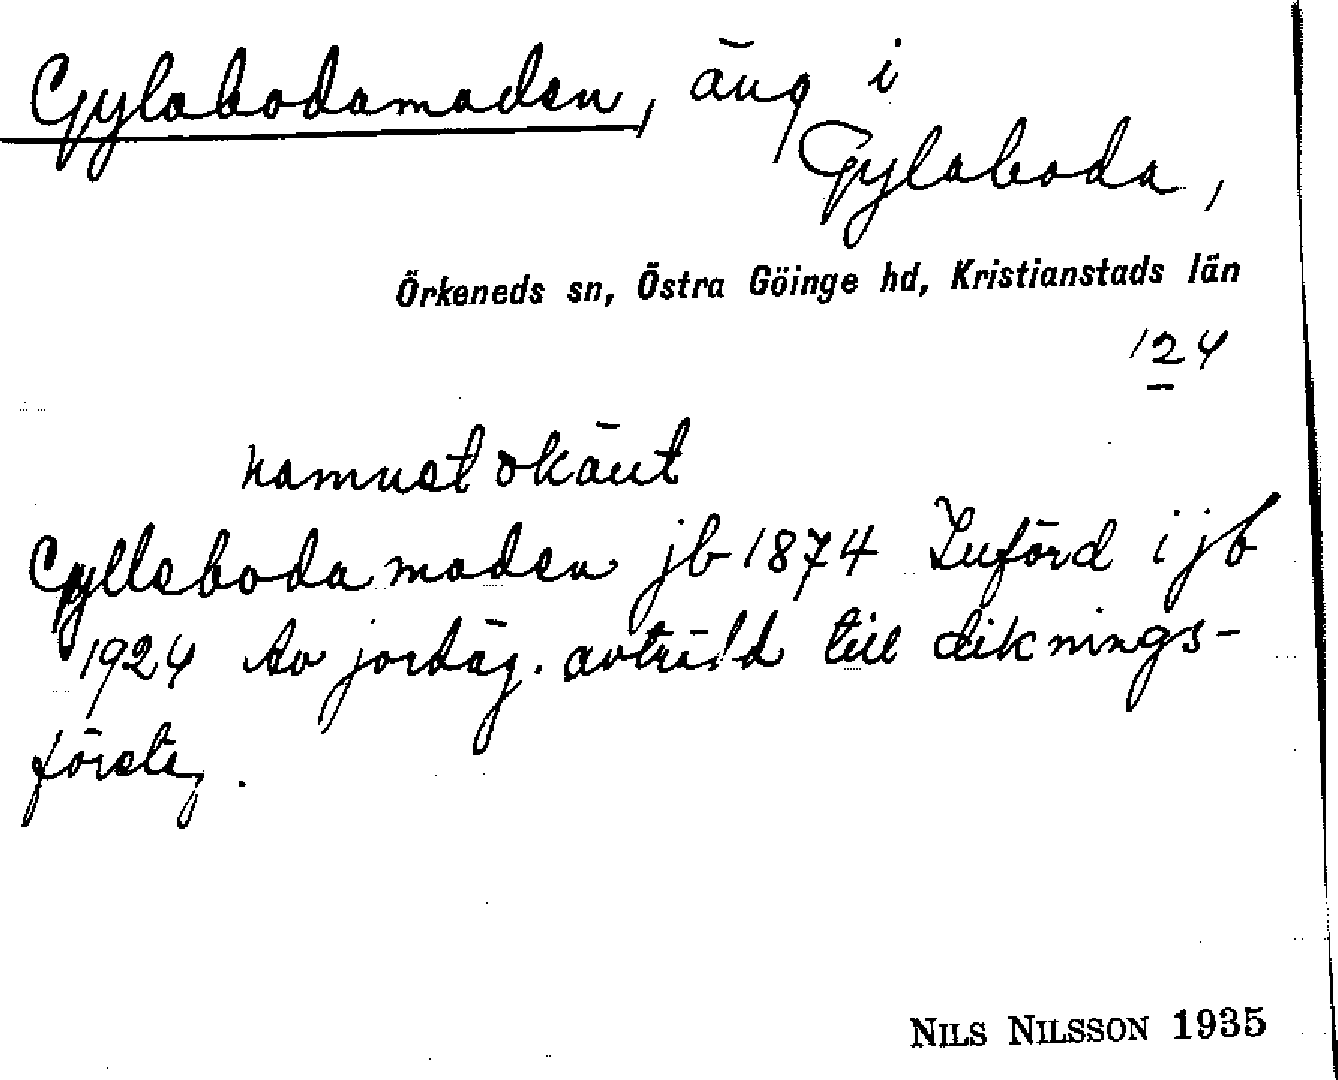 Gylsbodamaden, äng i
Gylsboda,
Örkeneds sn, Östra Göinge hd, Kristianstads län
124
namnet okänt
Gyllsbodamaden jb 1874 Införd i jb
1924 Av jordäg. avträdd till diknings-
företag.
NILS NILSSON 1935